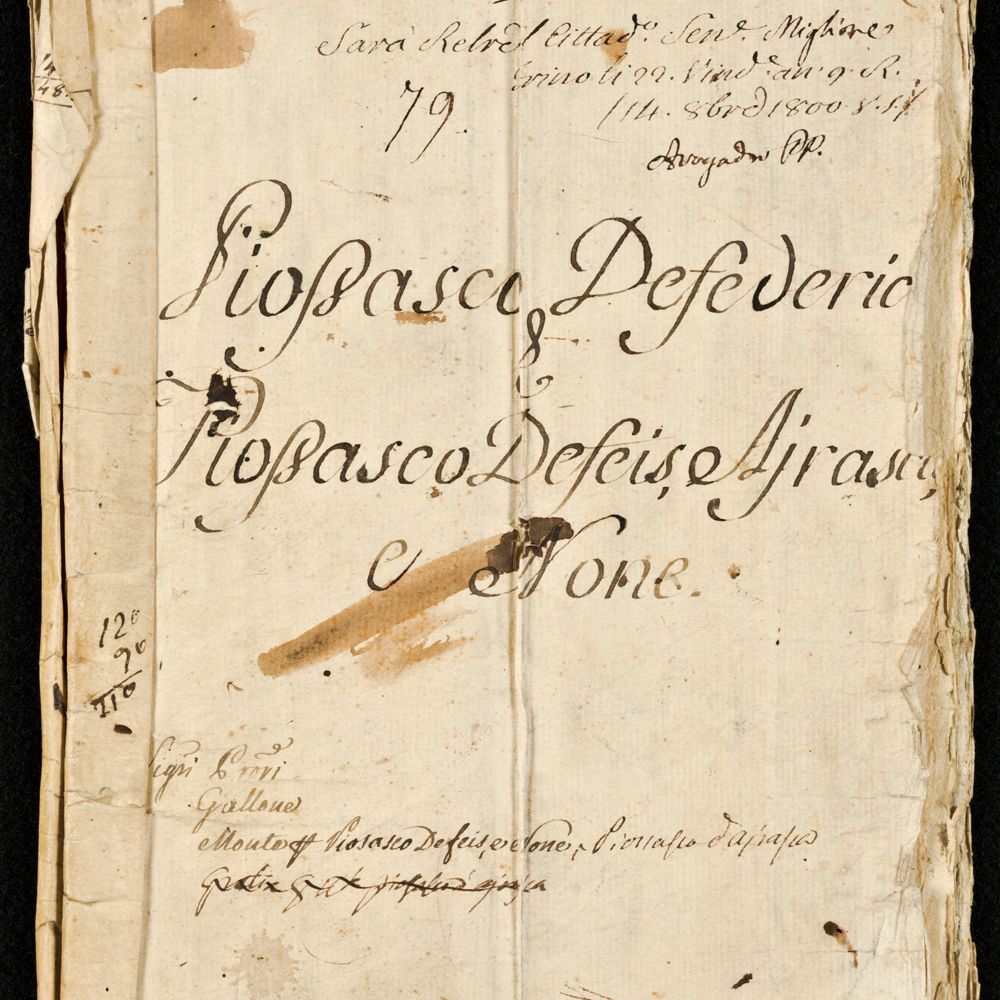 48.
Sarà Relre Cittad.º Sen.e Migliore
li 22. Vind.e an. 9. R.
79.
/14. 8bre 1800 v. s./
Avogadro PP.
Piossasco Defederic
&
Piossasco Defeis, e Ajrasca,
e None.
120
90
210
Sigri Prori
Gallone
Monte pr Piosasco Defeis, e None, Piossasco d'ajrasca